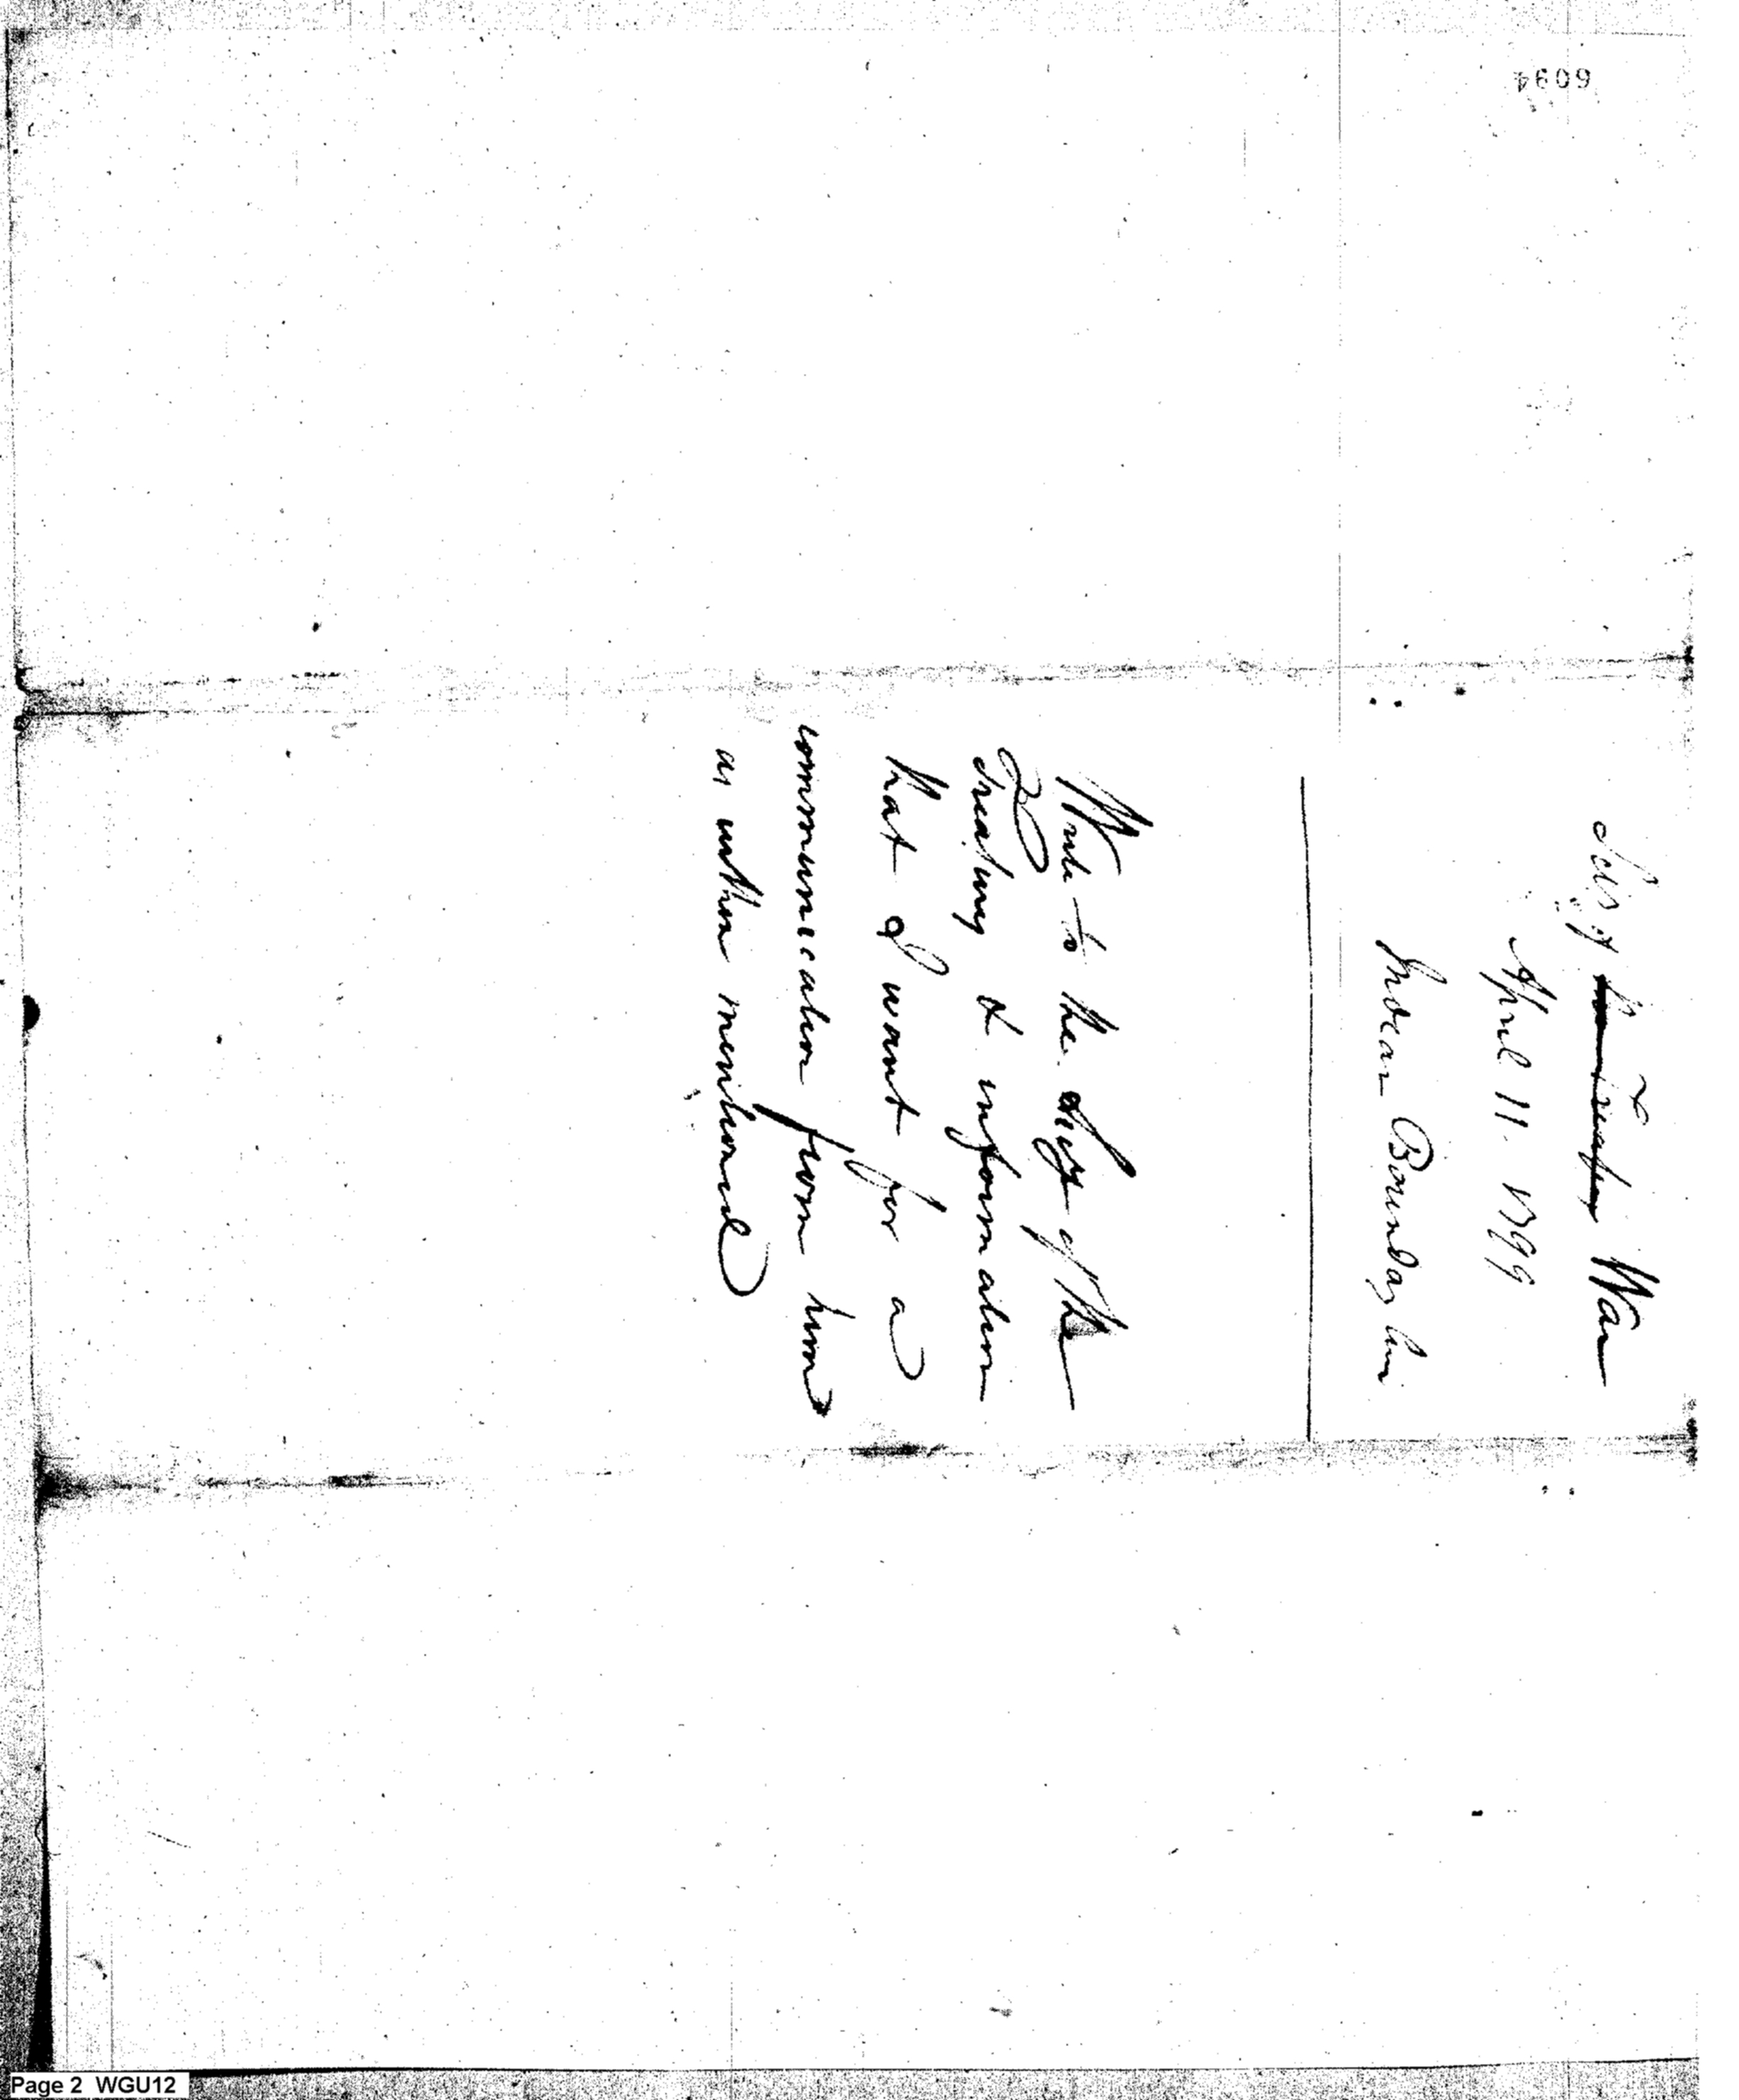 6094
Secy of the Treasury War
April 11. 1799
Indian Boundary line
Write to the Secy of the
Treasury & information
that I want for a
communication from him
as within mentioned
Page 2 WGU12